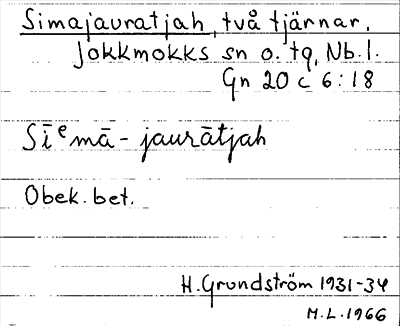 Simajauratjah, två tjärnar,
Jokkmokks sn o. tg, Nb. l.
Gn 20 c 6:18
Sīᵉmā-jaurātjah
Obek. bet.
H. Grundström 1931-34
M.L. 1966